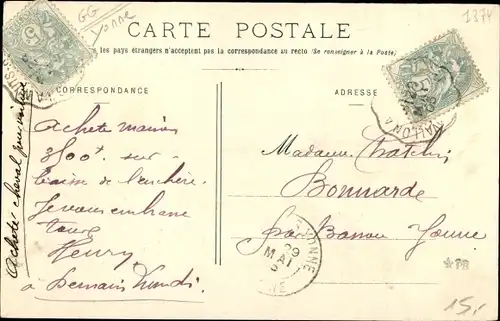 GG
Yonne
1374
CARTE POSTALE
les pays étrangers n'acceptent pas la correspondance au recto (Se renseigner à la Poste)
CORRESPONDANCE
ADRESSE
Achete maison
3800f sur
baisse de l'enchère
Je vous embrasse
tous
Henry
à Demain Lundi
Acheter cheval
Madame
Bonnarde
par Bassou Yonne
YONNE
29
MAI
*PR
15,-